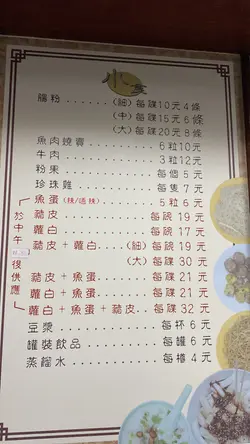 小食
腸粉......(細)每碟10元4條
(中)每碟15元6條
(大)每碟20元8條
魚肉燒賣............6粒10元
牛肉..................3粒12元
粉果..................每個5元
珍珠雞...............每隻7元
魚蛋(辣/唔辣)......5粒6元
豬皮..................每碗19元
蘿白..................每碗17元
豬皮+蘿白...(細)每碗19元
(大)每碟30元
豬皮+魚蛋.........每碟21元
蘿白+魚蛋.........每碟21元
蘿白+魚蛋+豬皮..每碟32元
於中午
後供應
豆漿..................每杯6元
罐裝飲品............每罐6元
蒸餾水...............每樽4元